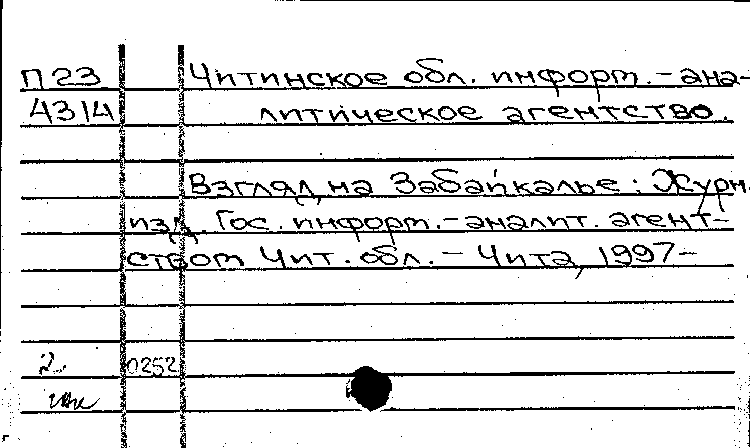 П23 Читинское обл. информ.-ана-
4314 литическое агентство.
Взгляд на Забайкалье: Журн.
изд. Гос. информ.-аналит. агент-
ством Чит. обл. – Чита, 1997–
2 0252